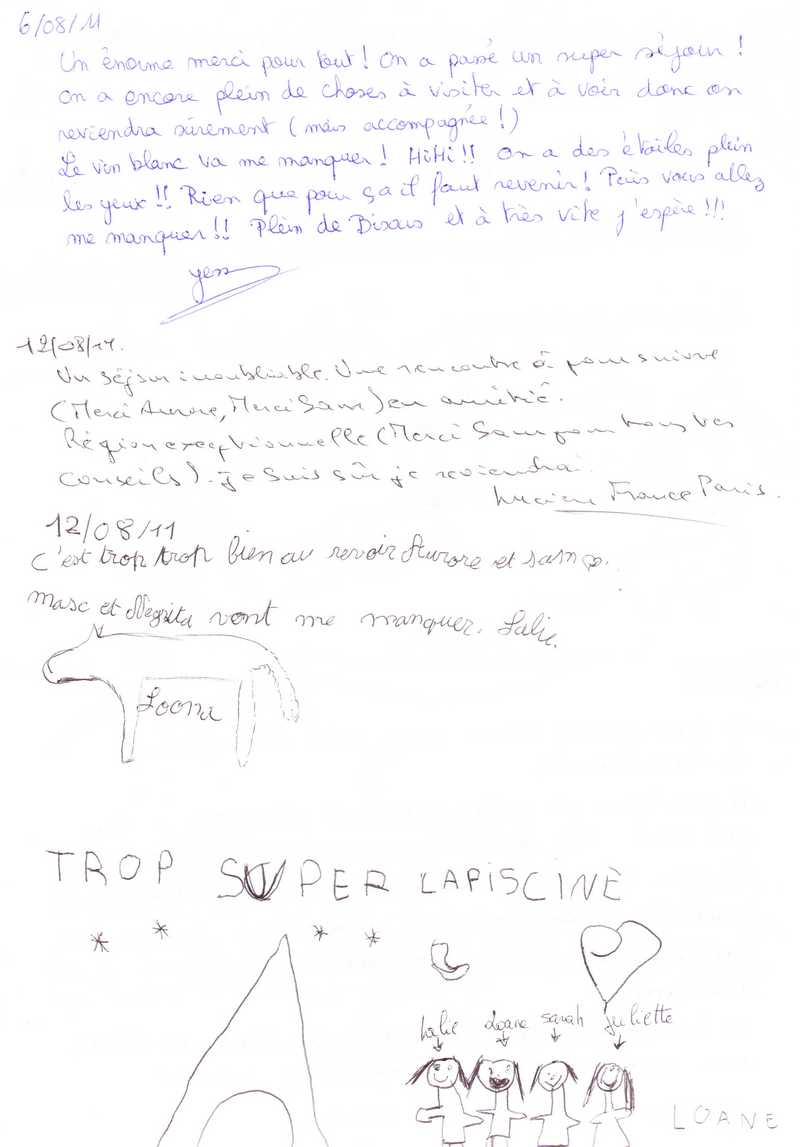 6/08/11
Un énorme merci pour tout ! On a passé un super séjour !
On a encore plein de choses à visiter et à voir donc on
reviendra sûrement (mais accompagnée !)
Le vin blanc va me manquer ! HiHi !! On a des étoiles plein
les yeux !! Rien que pour ça il faut revenir ! Puis vous allez
me manquer !! Plein de Bisous et à très vite j'espère !!!
yess
12/08/11.
Un séjour inoubliable. Une rencontre à poursuivre
(Merci Aurore, Merci Sam) en amitié.
Région exceptionnelle (Merci Sam pour tous vos
conseils). je suis sûr je reviendrai.
Lucien France Paris.
12/08/11
C'est trop trop bien au revoir Aurore et sam
masc et Négrita vont me manquer. Lalie.
Loona
TROP SUPER LAPISCINE
Lalie Loane sarah juliette
LOANE